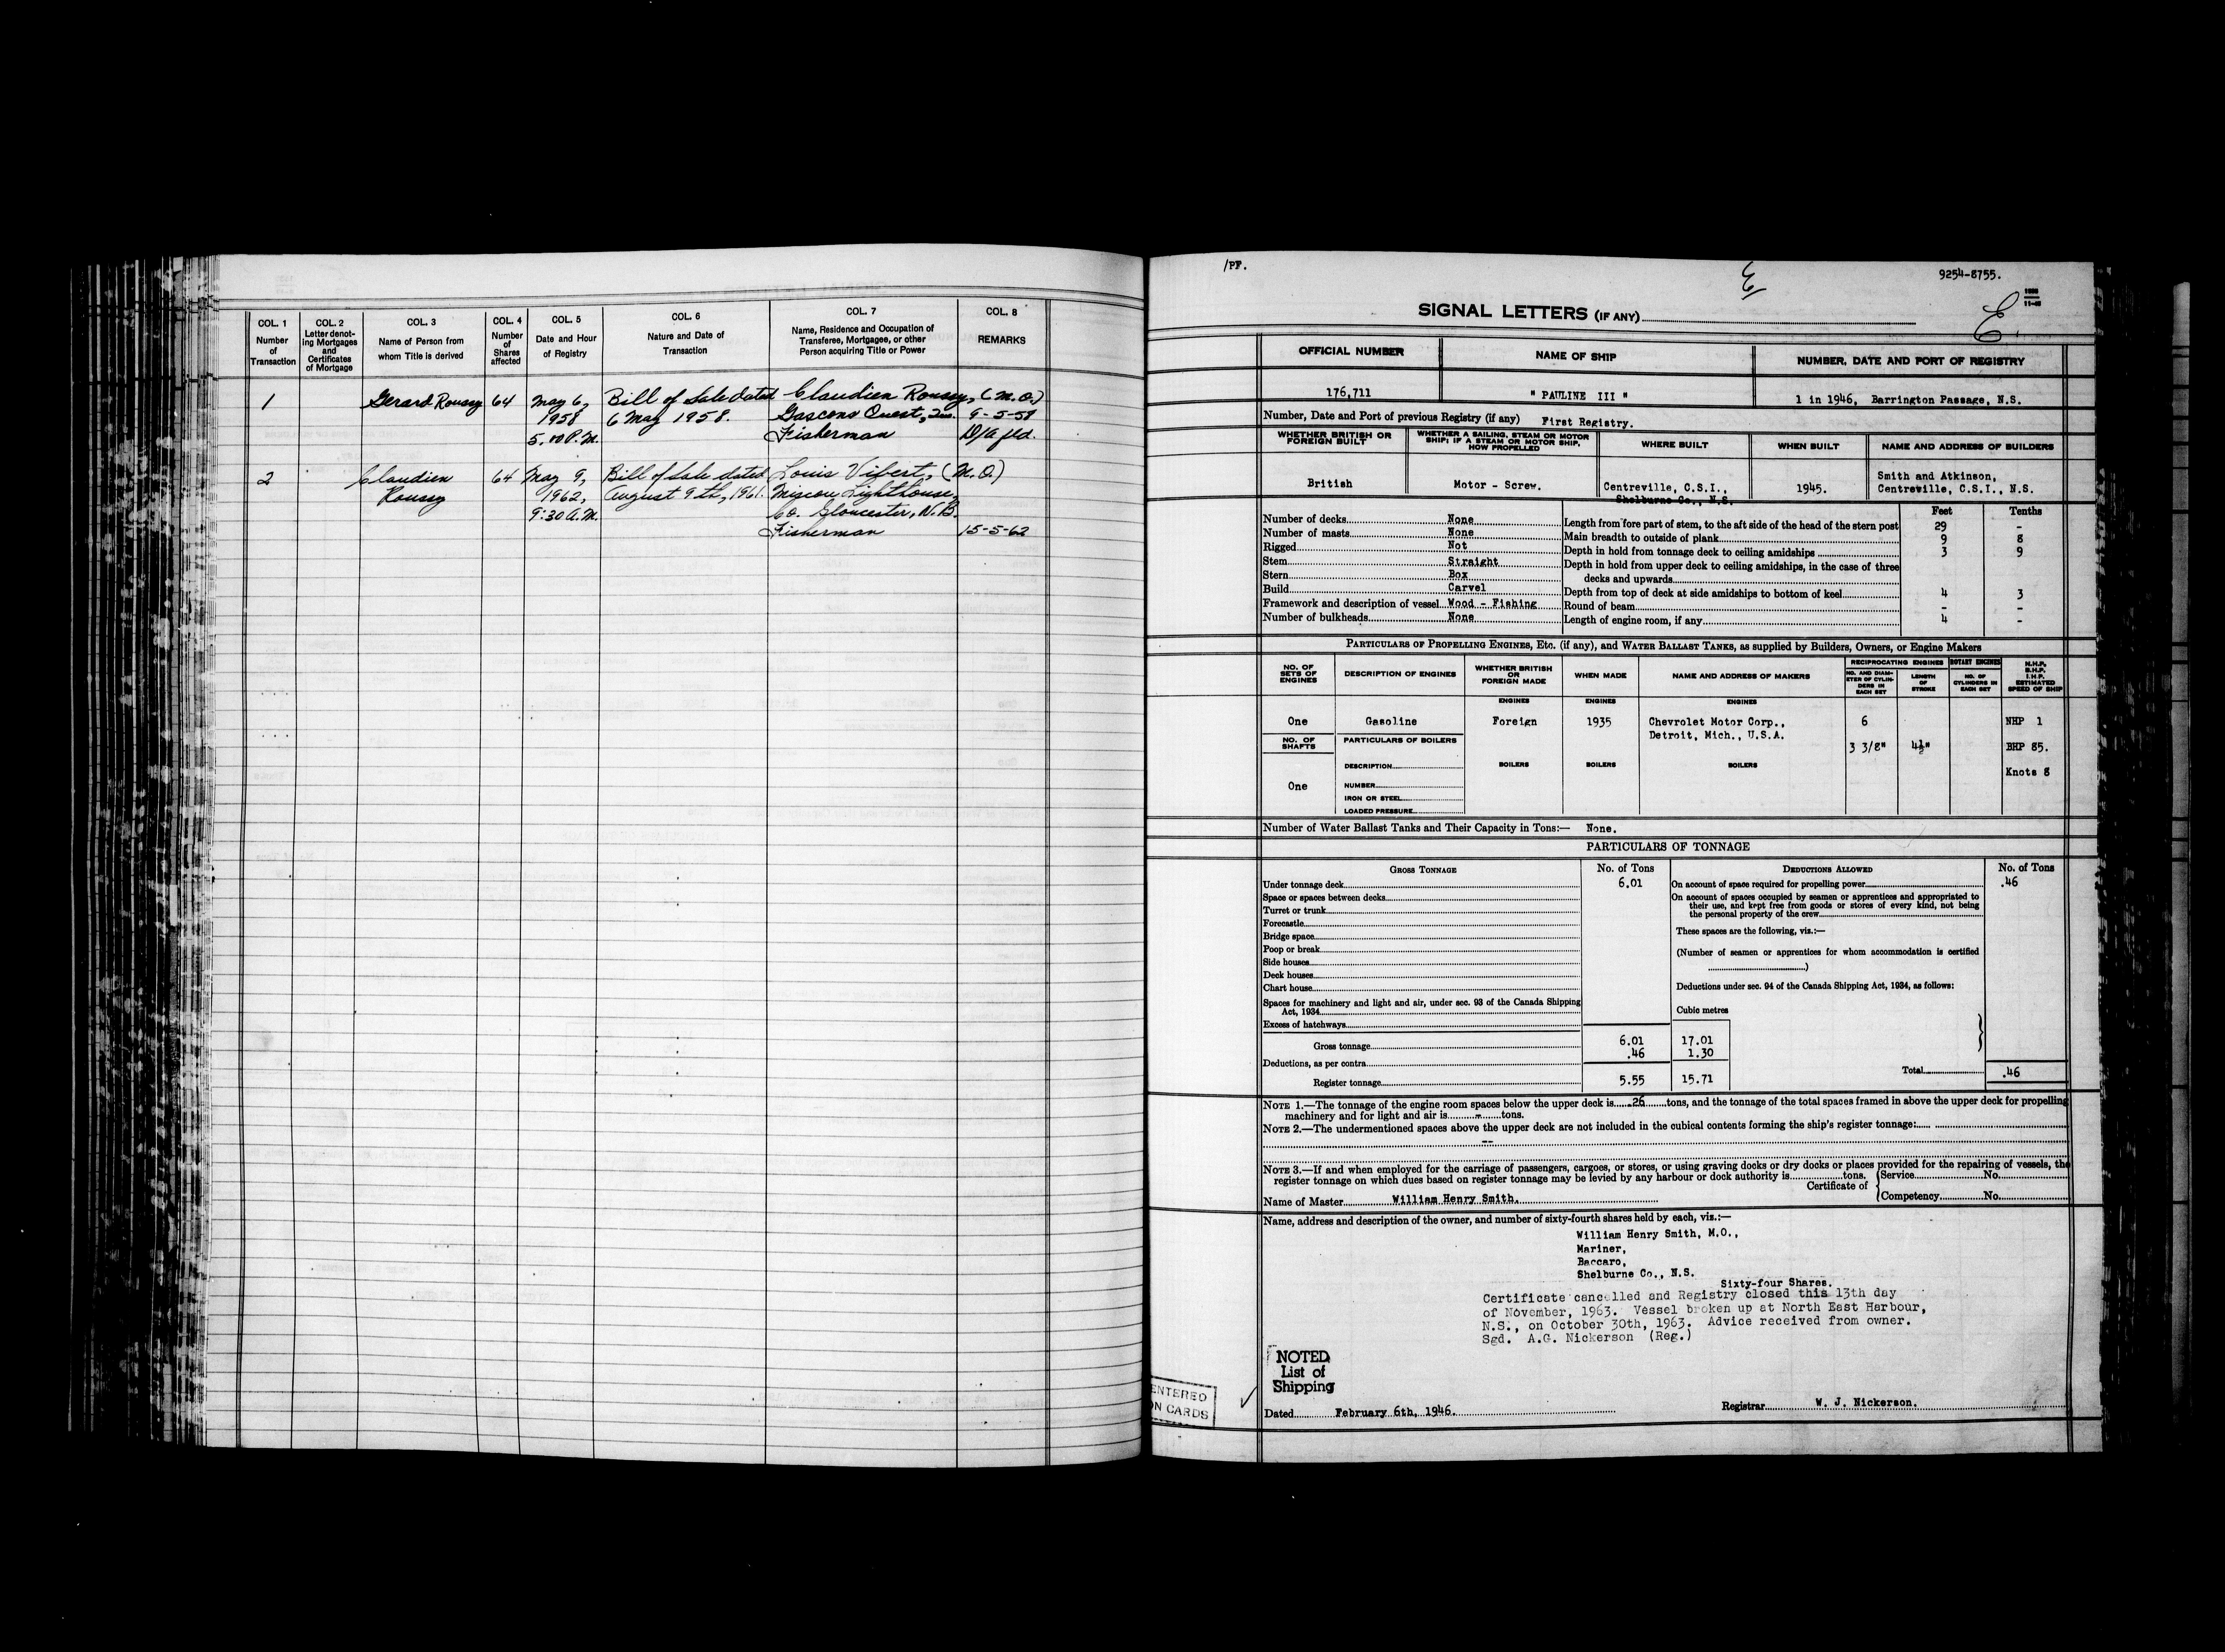 COL. 1 COL. 2 COL. 3 COL. 4 COL. 5 COL. 6 COL. 7 COL. 8
Number of Transaction
Letter denoting Mortgages and Certificates of Mortgage
Name of Person from whom Title is derived
Number of Shares affected
Date and Hour of Registry
Nature and Date of Transaction
Name, Residence and Occupation of Transferee, Mortgagee, or other Person acquiring Title or Power
REMARKS
1 Gerard Roussy 64 May 6, Bill of Sale dated Claudien Roussy, (M.O.)
1958 6 May 1958. Gascons Ouest, Que. 9-5-58
5.10 P.M. Fisherman D/A fld.
2 Claudien 64 May 9, Bill of Sale dated Louis Vibert, (M.O.)
Roussy 1962, August 9th, 1961. Miscou Lighthouse,
9:30 A.M. Co. Gloucester, N.B.
Fisherman 15-5-62
/PF.
E
9254-8755.
E.
SIGNAL LETTERS (IF ANY)
OFFICIAL NUMBER NAME OF SHIP NUMBER, DATE AND PORT OF REGISTRY
176,711 " PAULINE III " 1 in 1946, Barrington Passage, N.S.
Number, Date and Port of previous Registry (if any) First Registry.
WHETHER BRITISH OR FOREIGN BUILT
WHETHER A SAILING, STEAM OR MOTOR SHIP; IF A STEAM OR MOTOR SHIP, HOW PROPELLED
WHERE BUILT WHEN BUILT NAME AND ADDRESS OF BUILDERS
British Motor - Screw. Centreville, C.S.I., 1945. Smith and Atkinson,
Shelburne Co., N.S. Centreville, C.S.I., N.S.
Feet Tenths
Number of decks None
Number of masts None
Rigged Not
Stem Straight
Stern Box
Build Carvel
Framework and description of vessel Wood - Fishing
Number of bulkheads None
Length from fore part of stem, to the aft side of the head of the stern post 29 -
Main breadth to outside of plank 9 8
Depth in hold from tonnage deck to ceiling amidships 3 9
Depth in hold from upper deck to ceiling amidships, in the case of three
decks and upwards
Depth from top of deck at side amidships to bottom of keel 4 3
Round of beam - -
Length of engine room, if any 4 -
PARTICULARS OF PROPELLING ENGINES, ETC. (if any), and WATER BALLAST TANKS, as supplied by Builders, Owners, or Engine Makers
NO. OF SETS OF ENGINES
DESCRIPTION OF ENGINES
WHETHER BRITISH OR FOREIGN MADE
WHEN MADE
NAME AND ADDRESS OF MAKERS
RECIPROCATING ENGINES ROTARY ENGINES
NO. AND DIAMETER OF CYLINDERS IN EACH SET
LENGTH OF STROKE
NO. OF CYLINDERS IN EACH SET
N.H.P. B.H.P. I.H.P. ESTIMATED SPEED OF SHIP
ENGINES ENGINES ENGINES
One Gasoline Foreign 1935 Chevrolet Motor Corp., 6 NHP 1
Detroit, Mich., U.S.A.
NO. OF SHAFTS PARTICULARS OF BOILERS
3 3/8" 4½" BHP 85.
DESCRIPTION BOILERS BOILERS BOILERS
Knots 8
One NUMBER
IRON OR STEEL
LOADED PRESSURE
Number of Water Ballast Tanks and Their Capacity in Tons:— None.
PARTICULARS OF TONNAGE
GROSS TONNAGE No. of Tons DEDUCTIONS ALLOWED No. of Tons
Under tonnage deck 6.01
Space or spaces between decks
Turret or trunk
Forecastle
Bridge space
Poop or break
Side houses
Deck houses
Chart house
Spaces for machinery and light and air, under sec. 93 of the Canada Shipping
Act, 1934
Excess of hatchways
Gross tonnage 6.01 17.01
Deductions, as per contra .46 1.30
Register tonnage 5.55 15.71
On account of space required for propelling power .46
On account of spaces occupied by seamen or apprentices and appropriated to
their use, and kept free from goods or stores of every kind, not being
the personal property of the crew
These spaces are the following, viz.:—
(Number of seamen or apprentices for whom accommodation is certified
)
Deductions under sec. 94 of the Canada Shipping Act, 1934, as follows:
Cubic metres
Total .46
NOTE 1.—The tonnage of the engine room spaces below the upper deck is .26 tons, and the tonnage of the total spaces framed in above the upper deck for propelling
machinery and for light and air is - tons.
NOTE 2.—The undermentioned spaces above the upper deck are not included in the cubical contents forming the ship's register tonnage:
--
NOTE 3.—If and when employed for the carriage of passengers, cargoes, or stores, or using graving docks or dry docks or places provided for the repairing of vessels, the
register tonnage on which dues based on register tonnage may be levied by any harbour or dock authority is tons.
Certificate of { Service No.
Competency No.
Name of Master William Henry Smith.
Name, address and description of the owner, and number of sixty-fourth shares held by each, viz.:—
William Henry Smith, M.O.,
Mariner,
Baccaro,
Shelburne Co., N.S.
Sixty-four Shares.
Certificate cancelled and Registry closed this 13th day
of November, 1963. Vessel broken up at North East Harbour,
N.S., on October 30th, 1963. Advice received from owner.
Sgd. A.G. Nickerson (Reg.)
NOTED
List of
Shipping
ENTERED
ON CARDS
Dated February 6th, 1946.
Registrar W. J. Nickerson.